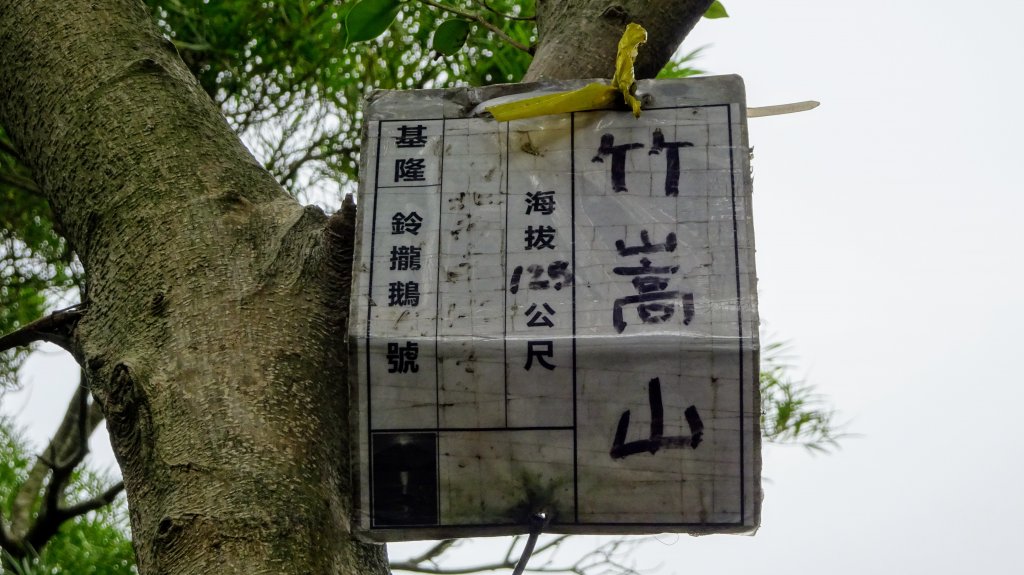 竹嵩山
海拔125公尺
基隆 鈴攏鵝 號